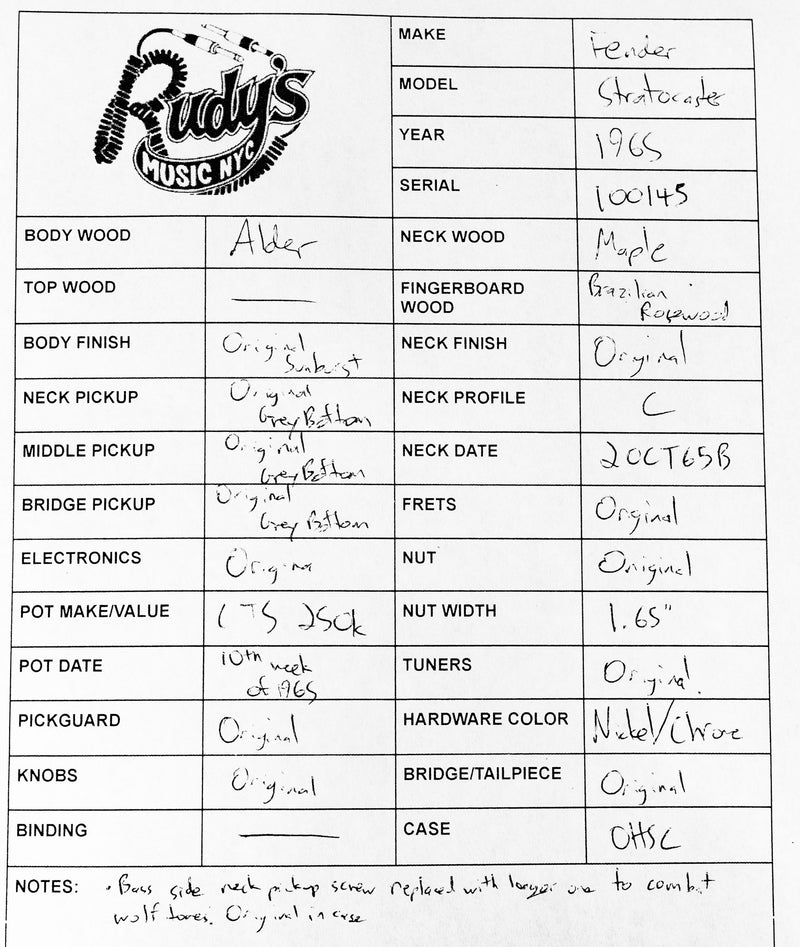 Rudy's
MUSIC NYC
MAKE Fender
MODEL Stratocaster
YEAR 1965
SERIAL 100145
BODY WOOD Alder NECK WOOD Maple
TOP WOOD — FINGERBOARD WOOD Brazilian Rosewood
BODY FINISH Original Sunburst NECK FINISH Original
NECK PICKUP Original Grey Bottom NECK PROFILE C
MIDDLE PICKUP Original Grey Bottom NECK DATE 2OCT65B
BRIDGE PICKUP Original Grey Bottom FRETS Original
ELECTRONICS Original NUT Original
POT MAKE/VALUE CTS 250k NUT WIDTH 1.65"
POT DATE 10th week of 1965 TUNERS Original
PICKGUARD Original HARDWARE COLOR Nickel/Chrome
KNOBS Original BRIDGE/TAILPIECE Original
BINDING — CASE OHSC
NOTES: • Bass side neck pickup screw replaced with longer one to combat
wolf tones. Original in case